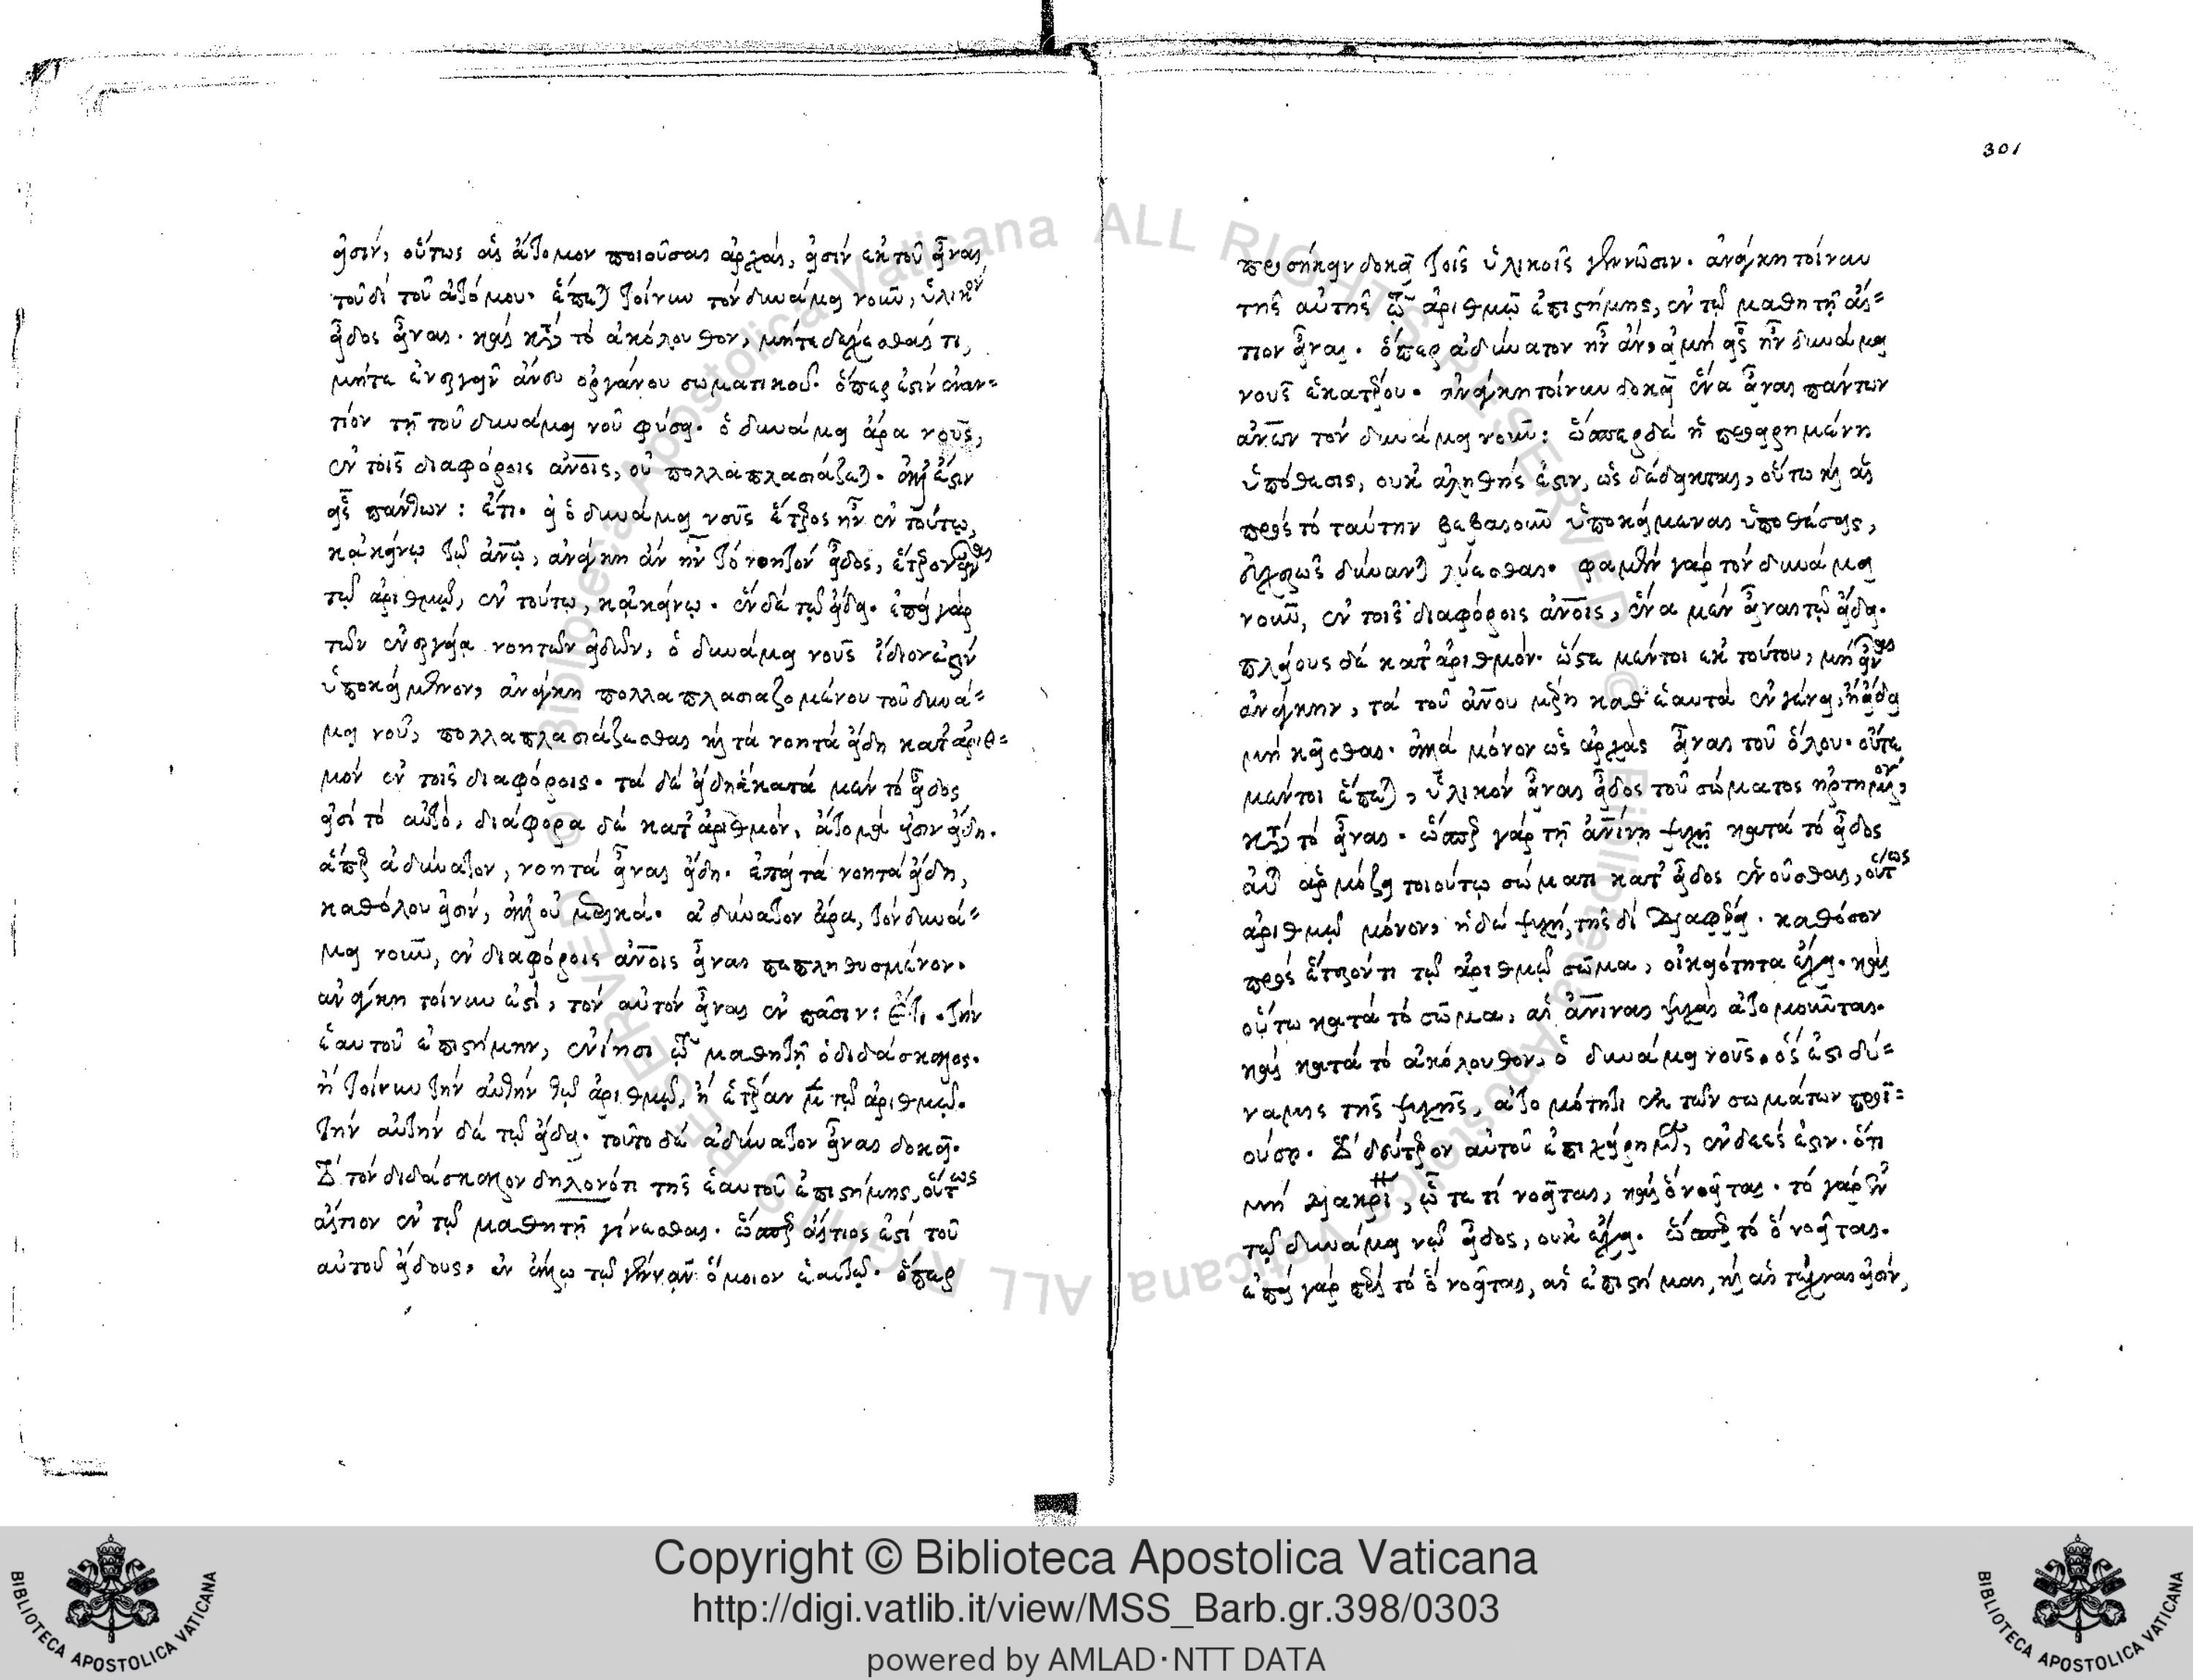 εἰσίν, οὕτως αἱ ἄτομον ποιοῦσαι ἀρχαί, εἰσίν ἐκ τοῦ εἶναι
τουδί τοῦ ἀτόμου. ἕπεται τοίνυν τόν δυνάμει νοῦν, ὑλικόν
εἶδος εἶναι. καί κατά τό ἀκόλουθον, μήτε δέχεσθαί τι,
μήτε ἐνεργεῖν ἄνευ ὀργάνου σωματικοῦ. ὅπερ ἐστίν ἐναν=
τίον τῇ τοῦ δυνάμει νοῦ φύσει. ὁ δυνάμει ἄρα νοῦς,
ἐν τοῖς διαφόροις ἀνοις, οὐ πολλαπλασιάζεται. ἀλλ' ἔστιν
εἷς πάντων: ἔτι. εἰ ὁ δυνάμει νοῦς ἕτερος ἦν ἐν τούτῳ,
κἀκείνῳ τῷ ἀνω, ἀνάγκη ἄν ἦν τό νοητόν εἶδος, ἕτερον εἶναι
τῷ ἀριθμῷ, ἐν τούτῳ, κἀκείνῳ. ἕν δέ τῷ εἴδει. ἐπεί γάρ
τῶν ἐνεργείᾳ νοητῶν εἰδῶν, ὁ δυνάμει νοῦς ἴδιον ἐστίν
ὑποκείμενον, ἀνάγκη πολλαπλασιαζομένου τοῦ δυνά=
μει νοῦ, πολλαπλασιάζεσθαι καί τά νοητά εἴδη κατ' ἀριθ=
μόν ἐν τοῖς διαφόροις. τά δέ εἴδη ἅ κατά μέν τό εἶδος
εἰσί τό αὐτό, διάφορα δέ κατ' ἀριθμόν, ἄτομά εἰσιν εἴδη.
ἅπερ ἀδύνατον, νοητά εἶναι εἴδη. ἐπεί τά νοητά εἴδη,
καθόλου εἰσίν, ἀλλ' οὐ μερικά. ἀδύνατον ἄρα, τόν δυνά=
μει νοῦν, ἐν διαφόροις ἀνοις εἶναι πεπληθυσμένον.
ἀνάγκη τοίνυν ἐστί, τόν αὐτόν εἶναι ἐν πᾶσιν: Ἔτι. τήν
ἑαυτοῦ ἐπιστήμην, ἐνίησι τῷ μαθητῇ ὁ διδάσκαλος.
ἤ τοίνυν τήν αὐτήν τῷ ἀριθμῷ, ἤ ἑτέραν μέν τῷ ἀριθμῷ.
τήν αὐτήν δέ τῷ εἴδει. τοῦτο δέ ἀδύνατον εἶναι δοκεῖ.
διά τόν διδάσκαλον δηλονότι τῆς ἑαυτοῦ ἐπιστήμης, οὕτως
αἴτιον ἐν τῷ μαθητῇ γίνεσθαι. ὥσπερ αἴτιος ἐστί τοῦ
αὐτοῦ εἴδους, ἐν ἄλλῳ τῷ γεννᾶν ὅμοιον ἑαυτῷ. ὅπερ
301
προσήκειν δοκεῖ τοῖς ὑλικοῖς γεννῶσιν. ἀνάγκη τοίνυν
τῆς αὐτῆς τῷ ἀριθμῷ ἐπιστήμης, ἐν τῷ μαθητῇ αἴ=
τιον εἶναι. ὅπερ ἀδύνατον ἦν ἄν, εἰ μή εἷς ἦν δυνάμει
νοῦς ἑκατέρου. ἀνάγκη τοίνυν δοκεῖ ἕνα εἶναι πάντων
ἀνων τόν δυνάμει νοῦν: ὥσπερ δέ ἡ προειρημένη
ὑπόθεσις, οὐκ ἀληθής ἐστιν, ὡς δέδεικται, οὕτω καί αἱ
πρός τό ταύτην βεβαιοῦν ὑποκείμεναι ὑποθέσεις,
εὐχερῶς δύνανται λύεσθαι. φαμέν γάρ τόν δυνάμει
νοῦν, ἐν τοῖς διαφόροις ἀνοις, ἕνα μέν εἶναι τῷ εἴδει.
πλείους δέ κατ' ἀριθμόν. ὥστε μέντοι ἐκ τούτου, μή εἶναι
ἀνάγκην, τά τοῦ ἀνου μέρη καθ' ἑαυτά ἐν γένει, ἤ εἴδει
μή κεῖσθαι. ἀλλά μόνον ὡς ἀρχάς εἶναι τοῦ ὅλου. οὔτε
μέντοι ἕπεται, ὑλικόν εἶναι εἶδος τοῦ σώματος ἠρτημένον,
κατά τό εἶναι. ὥσπερ γάρ τῇ ἀνινῃ ψυχῇ κατά τό εἶδος
αὐτῆς ἁρμόζει τοιούτῳ σώματι κατ' εἶδος ἑνοῦσθαι, οὕτως
ἀριθμῷ μόνον, ἡδέ ψυχή, τῆσδὶ διαφέρει. καθόσον
πρός ἕτερόν τι τῷ ἀριθμῷ σῶμα, οἰκειότητα ἔχει. καί
οὕτω κατά τό σῶμα, αἱ ἀνιναι ψυχαί ἀτομοῦνται.
καί κατά τό ἀκόλουθον, ὁ δυνάμει νοῦς, ὅς ἐστι δύ=
ναμις τῆς ψυχῆς, ἀτομότητι ἐκ τῶν σωμάτων προϊ=
ούσῃ. Τό δεύτερον αὐτοῦ ἐπιχείρημα, ἐνδεές ἐστιν. ὅτι
μή διακρί, ᾧ τε τί νοεῖται, καί ὅ νοεῖται. τό γάρ ἐν
τῷ δυνάμει νῷ εἶδος, οὐκ ἔχει. ὥσπερ τό ὅ νοεῖται.
ἐπεί γάρ περί τό ὅ νοεῖται, αἱ ἐπιστῆμαι, καί αἱ τέχναι εἰσίν,
Copyright © Biblioteca Apostolica Vaticana
http://digi.vatlib.it/view/MSS_Barb.gr.398/0303
powered by AMLAD·NTT DATA